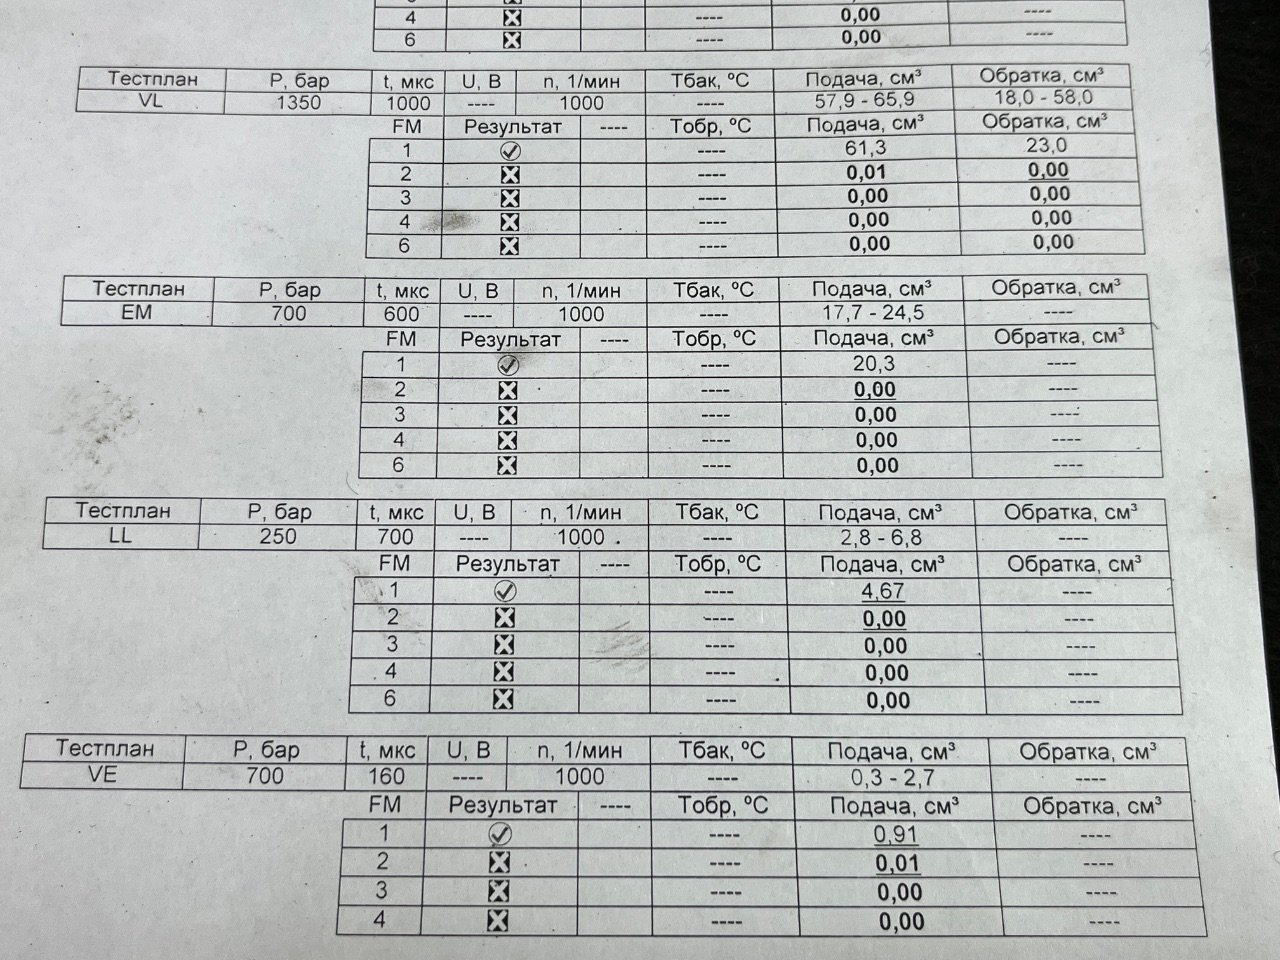 4 ---- 0,00 ----
6 ---- 0,00 ----
Тестплан P, бар t, мкс U, В n, 1/мин Tбак, ºC Подача, см³ Обратка, см³
VL 1350 1000 ---- 1000 ---- 57,9 - 65,9 18,0 - 58,0
FM Результат ---- Tобр, ºC Подача, см³ Обратка, см³
1 ---- 61,3 23,0
2 ---- 0,01 0,00
3 ---- 0,00 0,00
4 ---- 0,00 0,00
6 ---- 0,00 0,00
Тестплан P, бар t, мкс U, В n, 1/мин Tбак, ºC Подача, см³ Обратка, см³
EM 700 600 ---- 1000 ---- 17,7 - 24,5 ----
FM Результат ---- Tобр, ºC Подача, см³ Обратка, см³
1 ---- 20,3 ----
2 ---- 0,00 ----
3 ---- 0,00 ----
4 ---- 0,00 ----
6 ---- 0,00 ----
Тестплан P, бар t, мкс U, В n, 1/мин Tбак, ºC Подача, см³ Обратка, см³
LL 250 700 ---- 1000 ---- 2,8 - 6,8 ----
FM Результат ---- Tобр, ºC Подача, см³ Обратка, см³
1 ---- 4,67 ----
2 ---- 0,00 ----
3 ---- 0,00 ----
4 ---- 0,00 ----
6 ---- 0,00 ----
Тестплан P, бар t, мкс U, В n, 1/мин Tбак, ºC Подача, см³ Обратка, см³
VE 700 160 ---- 1000 ---- 0,3 - 2,7 ----
FM Результат ---- Tобр, ºC Подача, см³ Обратка, см³
1 ---- 0,91 ----
2 ---- 0,01 ----
3 ---- 0,00 ----
4 ---- 0,00 ----